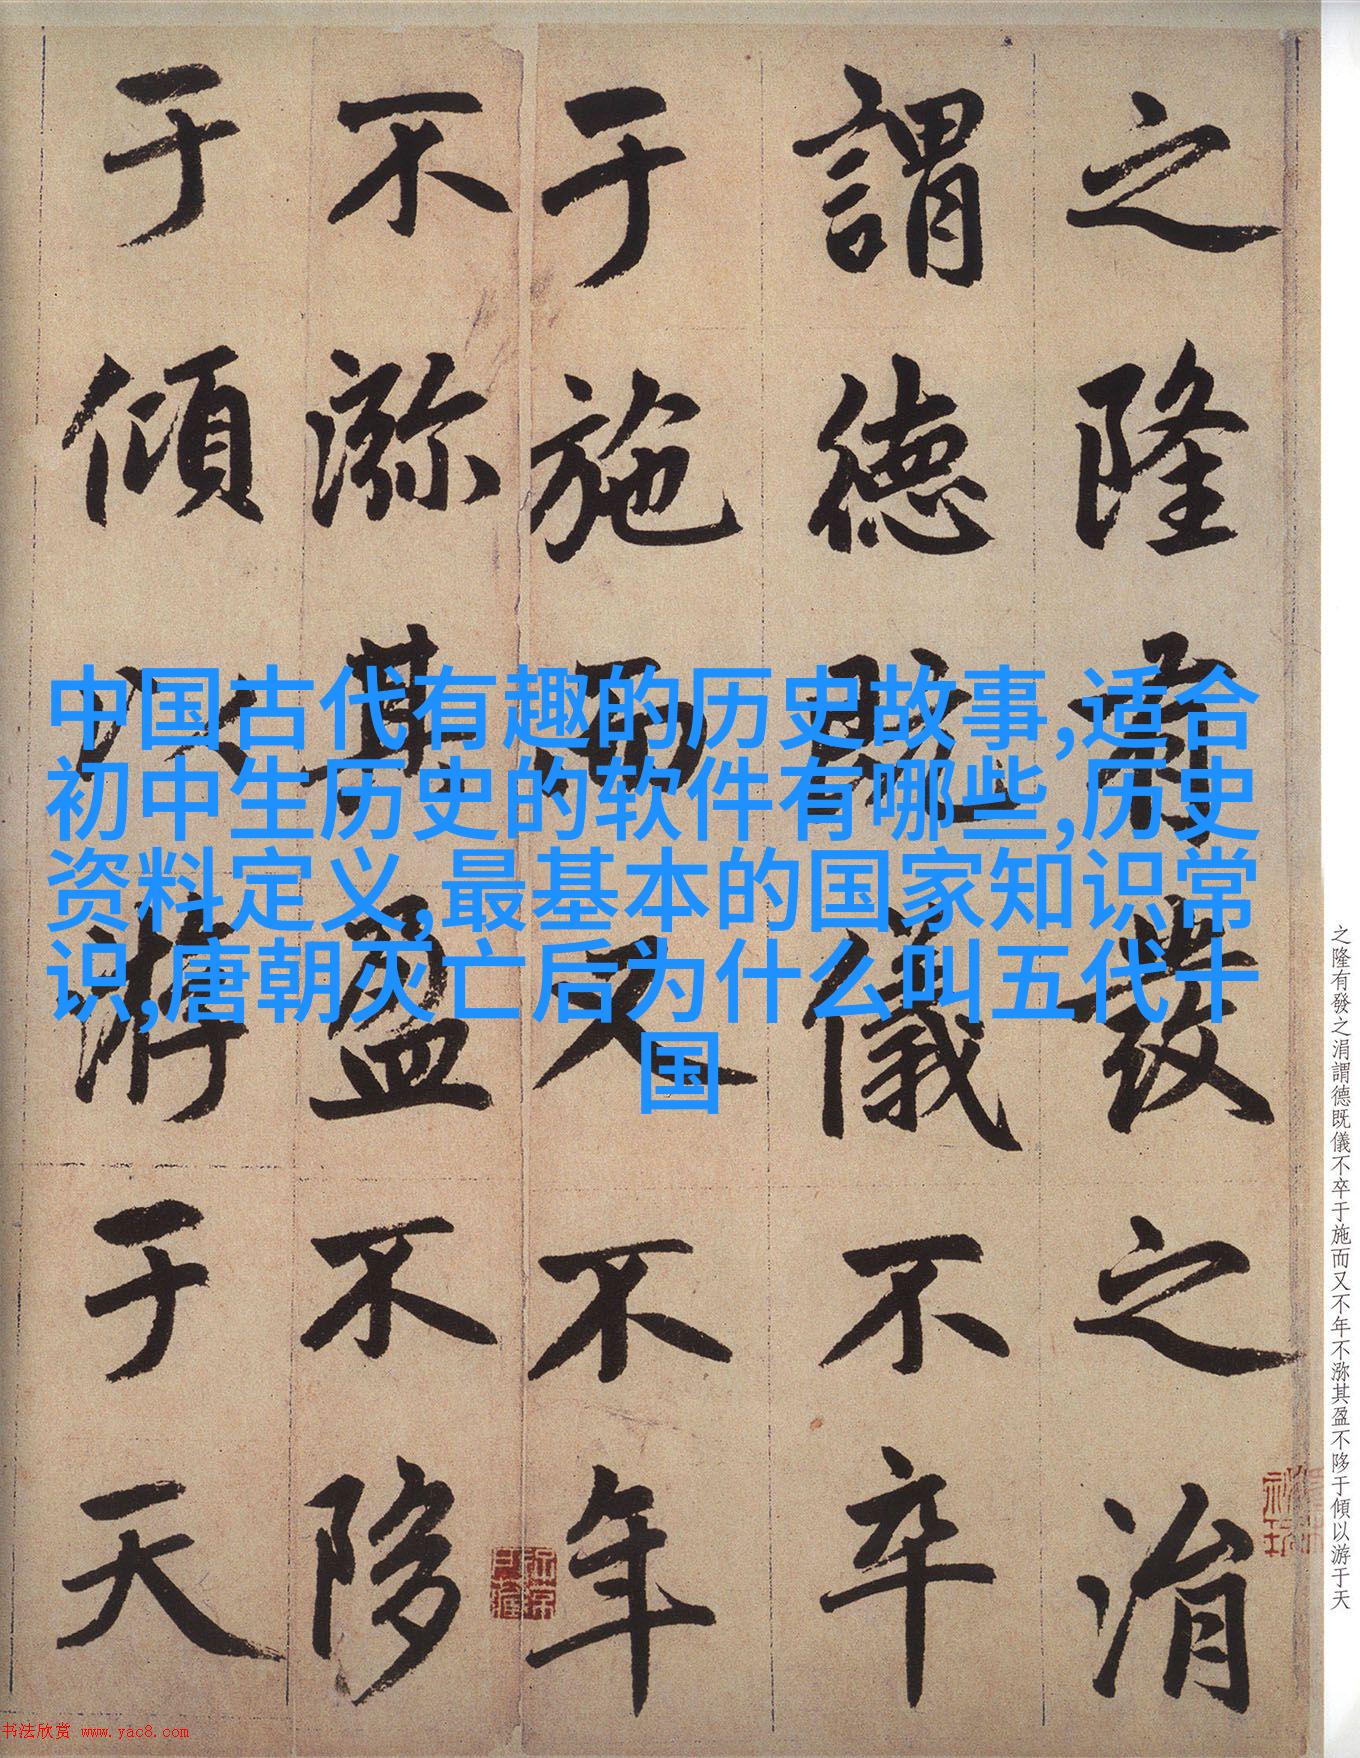 之隆有發之涓
謂德既儀不卒
于施而又不年
不沵其盈不陊
于傾以游于天
中国古代有趣的历史故事,适合
初中生历史的软件有哪些,历史
资料定义,最基本的国家知识常
识,唐朝灭亡后为什么叫五代十
国
之隆有發之涓謂德既儀不卒于施而又不年不沵其盈不陊于傾以游于天
书法欣赏 www.yac8.com